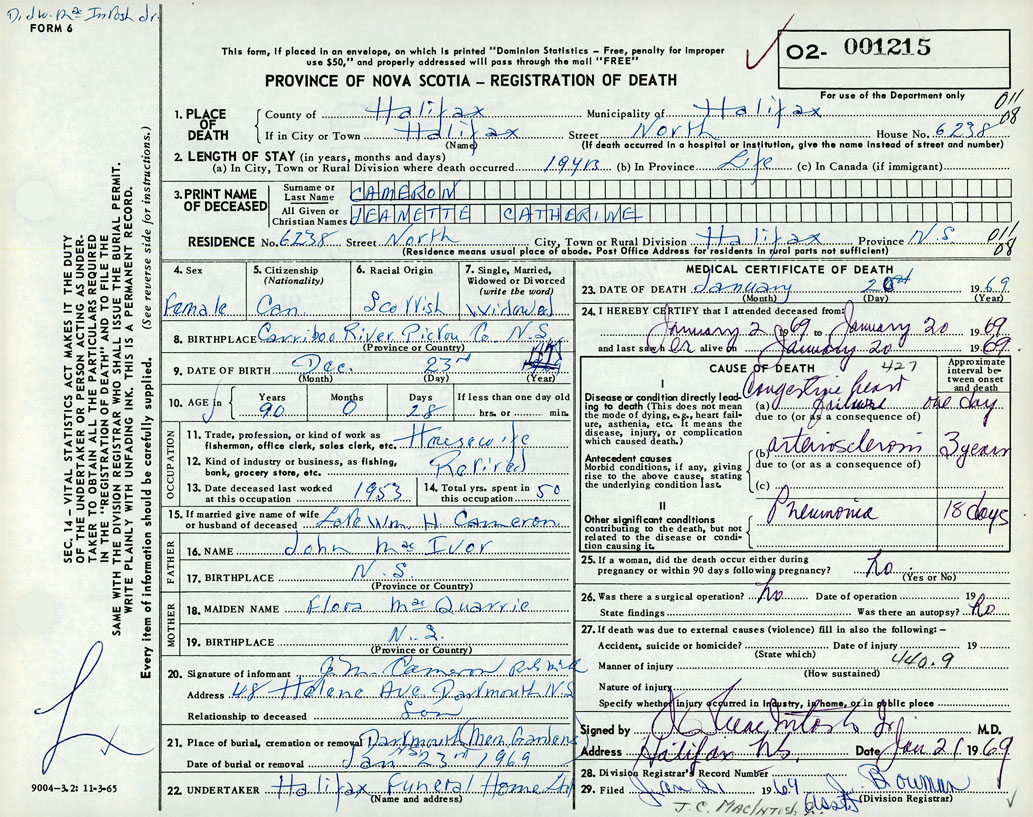 FORM 6
This form, if placed in an envelope, on which is printed "Dominion Statistics – Free, penalty for improper
use $50," and properly addressed will pass through the mail "FREE"
PROVINCE OF NOVA SCOTIA – REGISTRATION OF DEATH
O2- 001215
For use of the Department only
011
08
1. PLACE OF DEATH
County of Halifax Municipality of Halifax
If in City or Town Halifax Street North House No. 6238
(Name) (If death occurred in a hospital or institution, give the name instead of street and number)
2. LENGTH OF STAY (in years, months and days)
(a) In City, Town or Rural Division where death occurred (b) In Province Life (c) In Canada (if immigrant)
3. PRINT NAME OF DECEASED
Surname or Last Name CAMERON
All Given or Christian Names JEANETTE CATHERINE
RESIDENCE No. 6238 Street North City, Town or Rural Division Halifax Province N.S
(Residence means usual place of abode. Post Office Address for residents in rural parts not sufficient)
011
08
4. Sex
Female
5. Citizenship
(Nationality)
Can.
6. Racial Origin
Scottish
7. Single, Married,
Widowed or Divorced
(write the word)
Widowed
8. BIRTHPLACE Carriboo River Pictou Co N.S.
(Province or Country)
9. DATE OF BIRTH Dec. 23rd
(Month) (Day) (Year)
10. AGE
Years Months Days If less than one day old
90 0 28 hrs. or min.
OCCUPATION
11. Trade, profession, or kind of work as
fisherman, office clerk, sales clerk, etc. Housewife
12. Kind of industry or business, as fishing,
bank, grocery store, etc. Retired
13. Date deceased last worked
at this occupation 1953
14. Total yrs. spent in
this occupation 50
15. If married give name of wife
or husband of deceased Late Wm. H. Cameron
FATHER
16. NAME John MacIvor
17. BIRTHPLACE N.S.
(Province or Country)
MOTHER
18. MAIDEN NAME Flora MacQuarrie
19. BIRTHPLACE N.S.
(Province or Country)
20. Signature of informant Cameron
Address 48 Helene Ave. Dartmouth N.S
Relationship to deceased Son
21. Place of burial, cremation or removal Dartmouth Mem. Gardens
N.S.
Date of burial or removal Jan 23rd 1969
22. UNDERTAKER Halifax Funeral Home
(Name and address)
MEDICAL CERTIFICATE OF DEATH
23. DATE OF DEATH January 1969
(Month) (Day) (Year)
24. I HEREBY CERTIFY that I attended deceased from
January 2 1969 to January 20 1969
and last saw her alive on January 20 1969.
CAUSE OF DEATH 427
Approximate interval between onset and death
I
Disease or condition directly leading to death (This does not mean the mode of dying, e.g., heart failure, asthenia, etc. It means the disease, injury, or complication which caused death.)
(a) Congestive heart failure one day
due to (or as a consequence of)
Antecedent causes
Morbid conditions, if any, giving rise to the above cause, stating the underlying condition last.
(b) arteriosclerosis 3 years
due to (or as a consequence of)
(c)
II
Other significant conditions
contributing to the death, but not related to the disease or condition causing it.
Pneumonia 18 days
25. If a woman, did the death occur either during
pregnancy or within 90 days following pregnancy? No
(Yes or No)
26. Was there a surgical operation? No Date of operation 19
State findings Was there an autopsy? No
27. If death was due to external causes (violence) fill in also the following: –
Accident, suicide or homicide? Date of injury 19
(State which)
440.9
Manner of injury
(How sustained)
Nature of injury
Specify whether injury occurred in industry, in home, or in public place
Signed by MacIntosh Jr. M.D.
Address Halifax N.S. Date Jan 21 1969
28. Division Registrar's Record Number
29. Filed Jan 21 1969 Bowman
(Division Registrar)
J. C. MACINTOSH
SEC. 14 – VITAL STATISTICS ACT MAKES IT THE DUTY
OF THE UNDERTAKER OR PERSON ACTING AS UNDER-
TAKER TO OBTAIN ALL THE PARTICULARS REQUIRED
IN THE "REGISTRATION OF DEATH" AND TO FILE THE
SAME WITH THE DIVISION REGISTRAR WHO SHALL ISSUE THE BURIAL PERMIT.
WRITE PLAINLY WITH UNFADING INK. THIS IS A PERMANENT RECORD.
Every item of information should be carefully supplied. (See reverse side for instructions.)
9004-3.2: 11-3-65